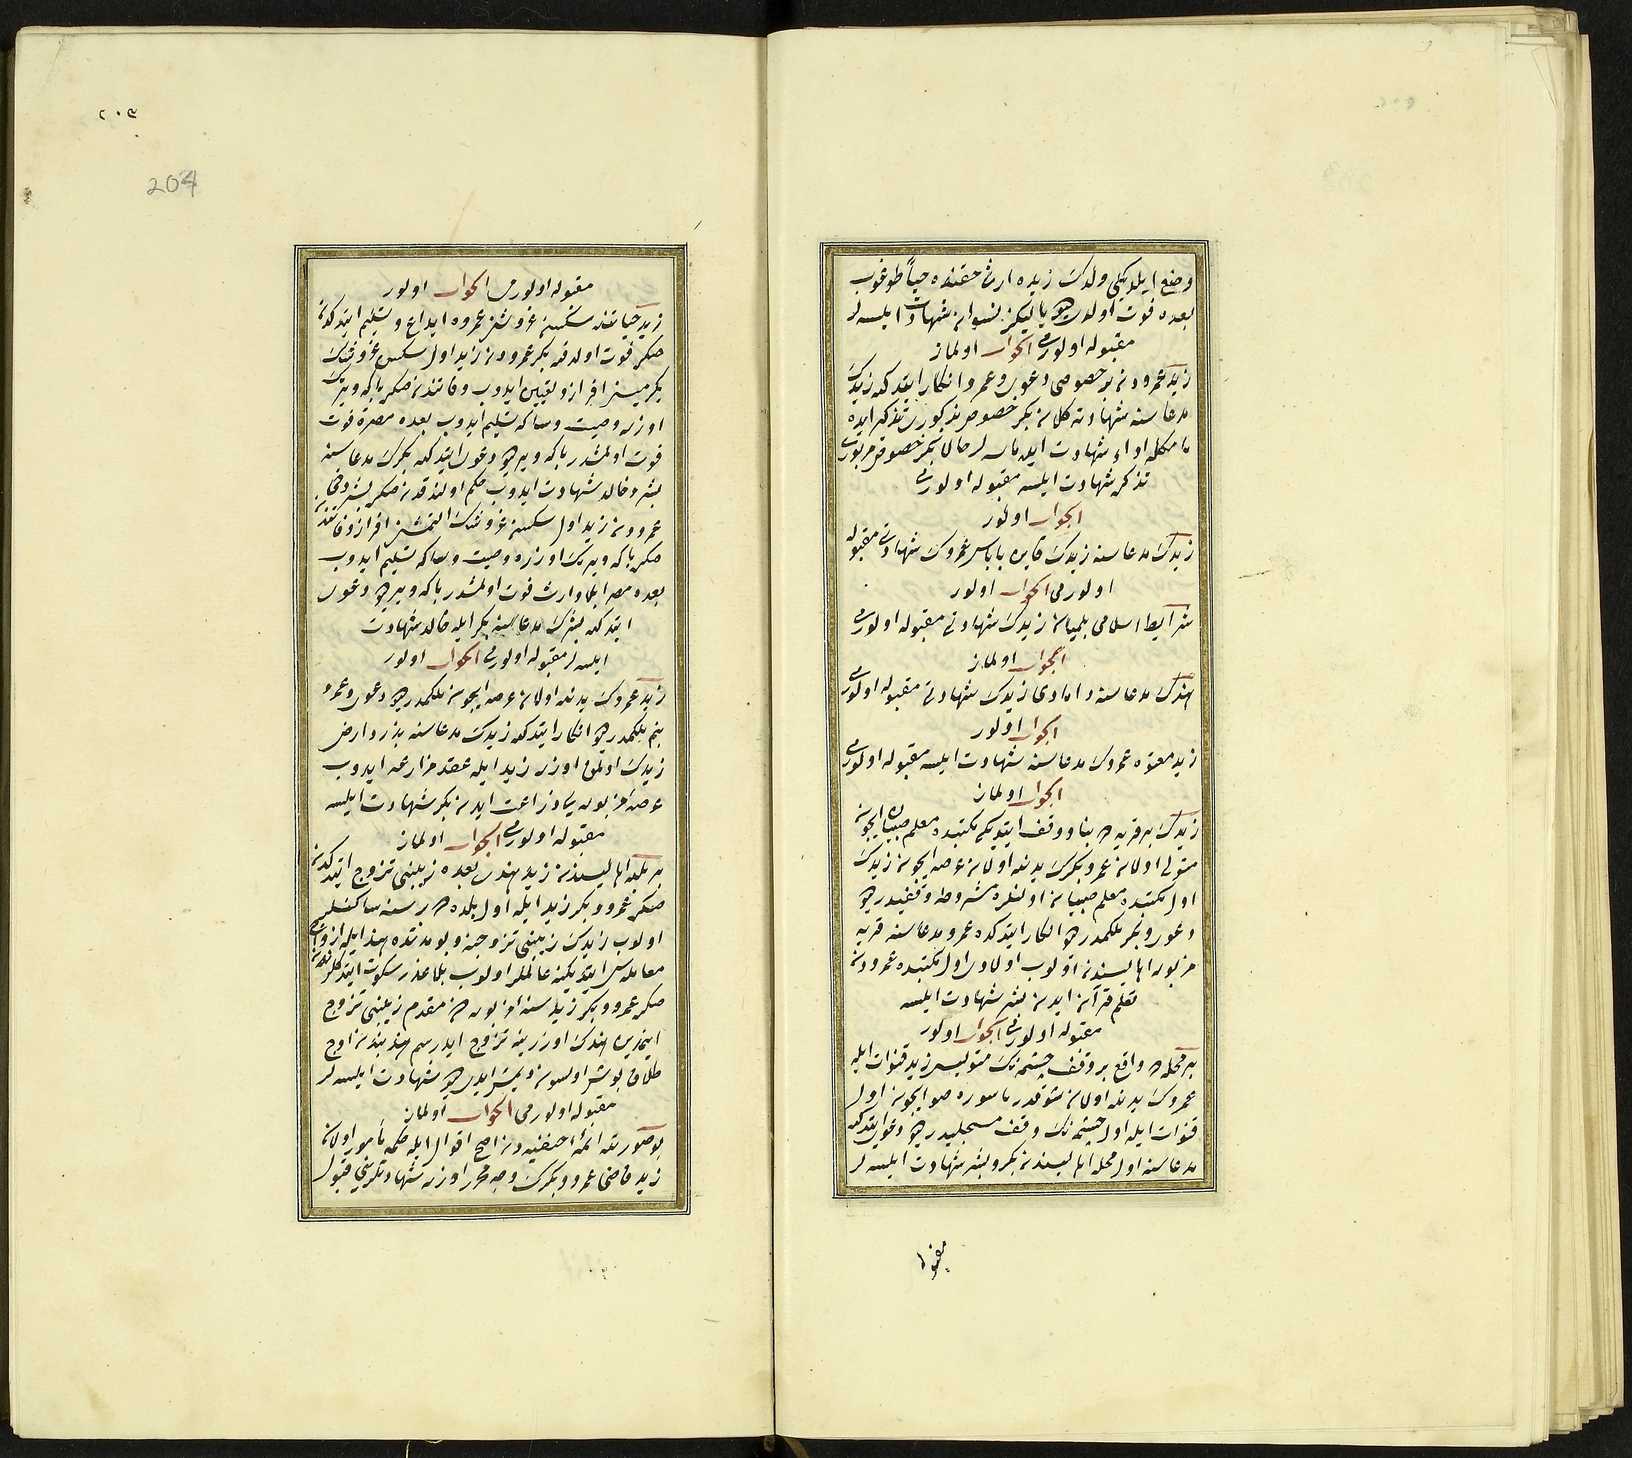 وضع ایلدیکی ولدک زیده ارث حقنده حیاً طوغوب
بعده فوت اولدی دیو یالکز نسوان شهادت ایلسه لر
مقبوله اولورمی الجواب اولماز
زید عمرودن بر خصوصی دعوی و عمرو انکار ایتدکده زیدک
مدعاسنه شهادته کلان بکر خصوص مذکوری تذکر ایده
مامکله اداء شهادت ایلدی حالا بکر خصوص مزبوری
تذکر شهادت ایلسه مقبوله اولورمی
الجواب اولور
زیدک مدعاسنه زیدک باباسی عمروک شهادتی مقبوله
اولورمی الجواب اولور
شرایط اسلامی بلمیان زیدک شهادتی مقبوله اولورمی
الجواب اولماز
هندک مدعاسنه دامادی زیدک شهادتی مقبوله اولورمی
الجواب اولور
زید معتوه عمروک مدعاسنه شهادت ایلسه مقبوله اولورمی
الجواب اولماز
زیدک بر قریه ده بنا و وقف ایتدیکی مکتبده معلم صبیان ایچون
متولی اولان عمرو بکرک یدنده اولان عرصه ایچون زیدک
اول مکتبده معلم صبیان اولنلره مشروطه وقفیدر دیو
دعوی و بکر ملکمدر دیو انکار ایتدکده عمرو مدعاسنه قریه
مزبوره اهالیسندن اولوب اولادی اول مکتبده عمرودن
تعلم قرآن ایدن بشر شهادت ایلسه
مقبوله اولورمی الجواب اولور
بر محله ده واقع بر وقف چشمه نک متولیسی زید قنوات ایله
عمروک یدنده اولان شو قدر ماسوره صو ایچون اول
قنوات ایله اول چشمه نک وقف مسجلیدر دیو دعوی ایتدکده
مدعاسنه اول محله اهالیسندن بکر و بشر شهادت ایلسه لر
مقبوله
٢٠٣
204
مقبوله اولورمی الجواب اولور
زید حیاتنده سکسن غروشنی عمروه ایداع و تسلیم ایتدکدن
صکره فوت اولدقده بکر عمرودن زید اول سکسن غروشک
یکرمیسنی افراز و تعیین ایدوب وفاتندن صکره باکه ویرمک
اوزره وصیت و سکا تسلیم ایدوب بعده مصراً فوت
فوت اولمشدر باکه ویر دیو دعوی ایتدکده بکرک مدعاسنه
بشر و خالد شهادت ایدوب حکم اولندقدن صکره بشر دخی
عمرودن زید اول سکسن غروشک التمشنی افراز وفاتندن
صکره باکه ویرمک اوزره وصیت و سکا تسلیم ایدوب
بعده مصراً بلا وارث فوت اولمشدر باکه ویر دیو دعوی
ایتدکده بشرک مدعاسنه بکر ایله خالد شهادت
ایلسه لر مقبوله اولورمی الجواب اولور
زید عمروک یدنده اولان عرصه ایچون ملکمدر دیو دعوی و عمرو
بنم ملکمدر دیو انکار ایتدکده زیدک مدعاسنه بذر و ارض
زیدک اولمق اوزره زید ایله عقد مزارعه ایدوب
عرصه مزبوره یی زراعت ایدن بکر شهادت ایلسه
مقبوله اولورمی الجواب اولماز
بر بلده اهالیسندن زید هندی بعده زینبی تزوج ایتدکدن
صکره عمرو و بکر زید ایله اول بلده ده بر سنه ساکنلر
اولوب زیدک زینبی تزوجنه و بو مدتده هند ایله ازواج
معامله سی ایتدیکنه عالملر اولوب بلا عذر سکوت ایتدکلرندن
صکره عمرو و بکر زید سنه مزبوره دن مقدم زینبی تزوج
ایتمزدن هندک اوزرینه تزوج ایدرسم هند بندن اوچ
طلاق بوش اولسون دیمش ایدی دیو شهادت ایلسه لر
مقبوله اولورمی الجواب اولماز
بو صورتده ائمهٔ حنفیه دن اصح اقوال ایله حکمه مأمور اولان
زید قاضی عمرو و بکرک وجه محرر اوزره شهادتلرینی قبول